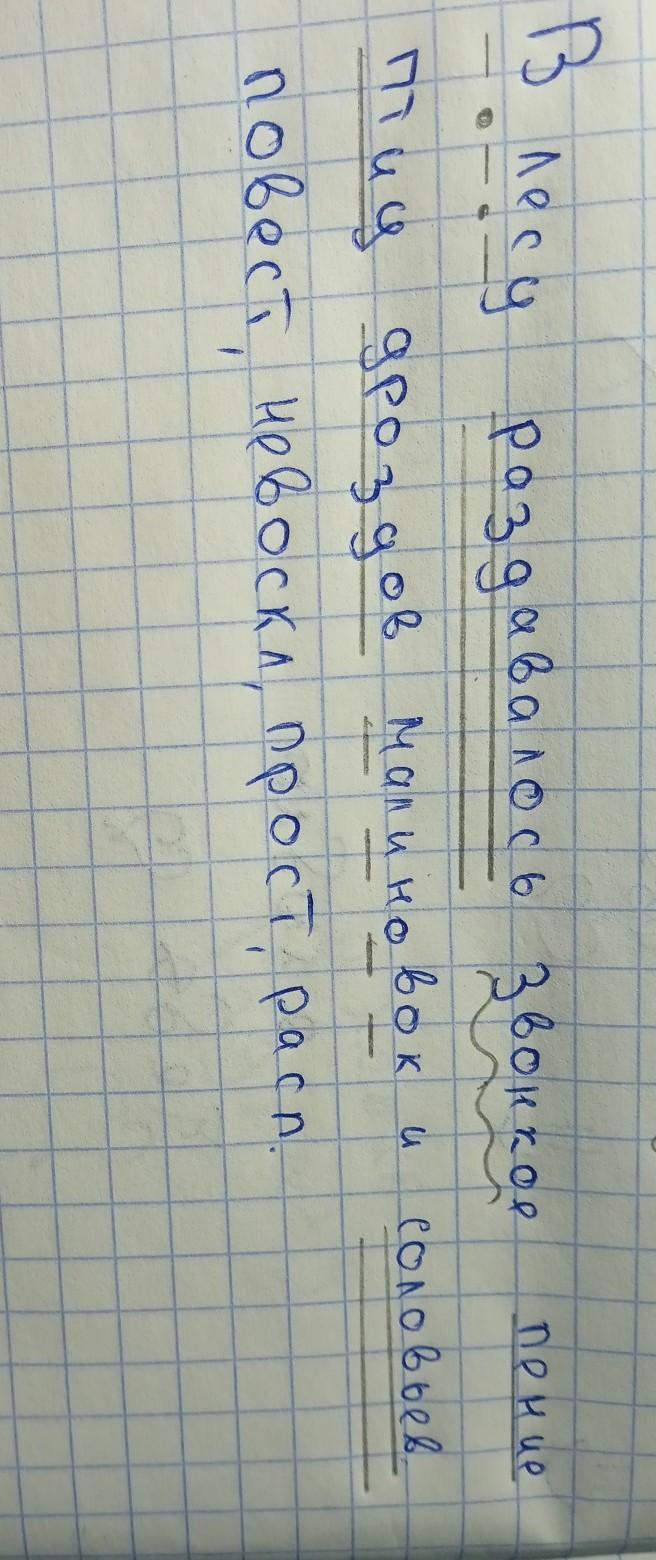 В лесу раздавалось звонкое пение
птиц дроздов малиновок и соловьев.
повест, невоскл, прост, расп.